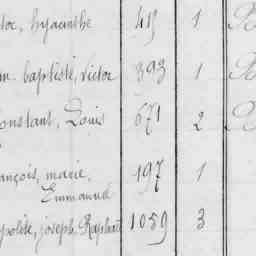 toc, hyacinthe 49 1
baptiste, victor 393 1
constant, Louis 671 2
ançois, marie, 197 1
Emmanuel
polite, joseph Raphaël 1059 3